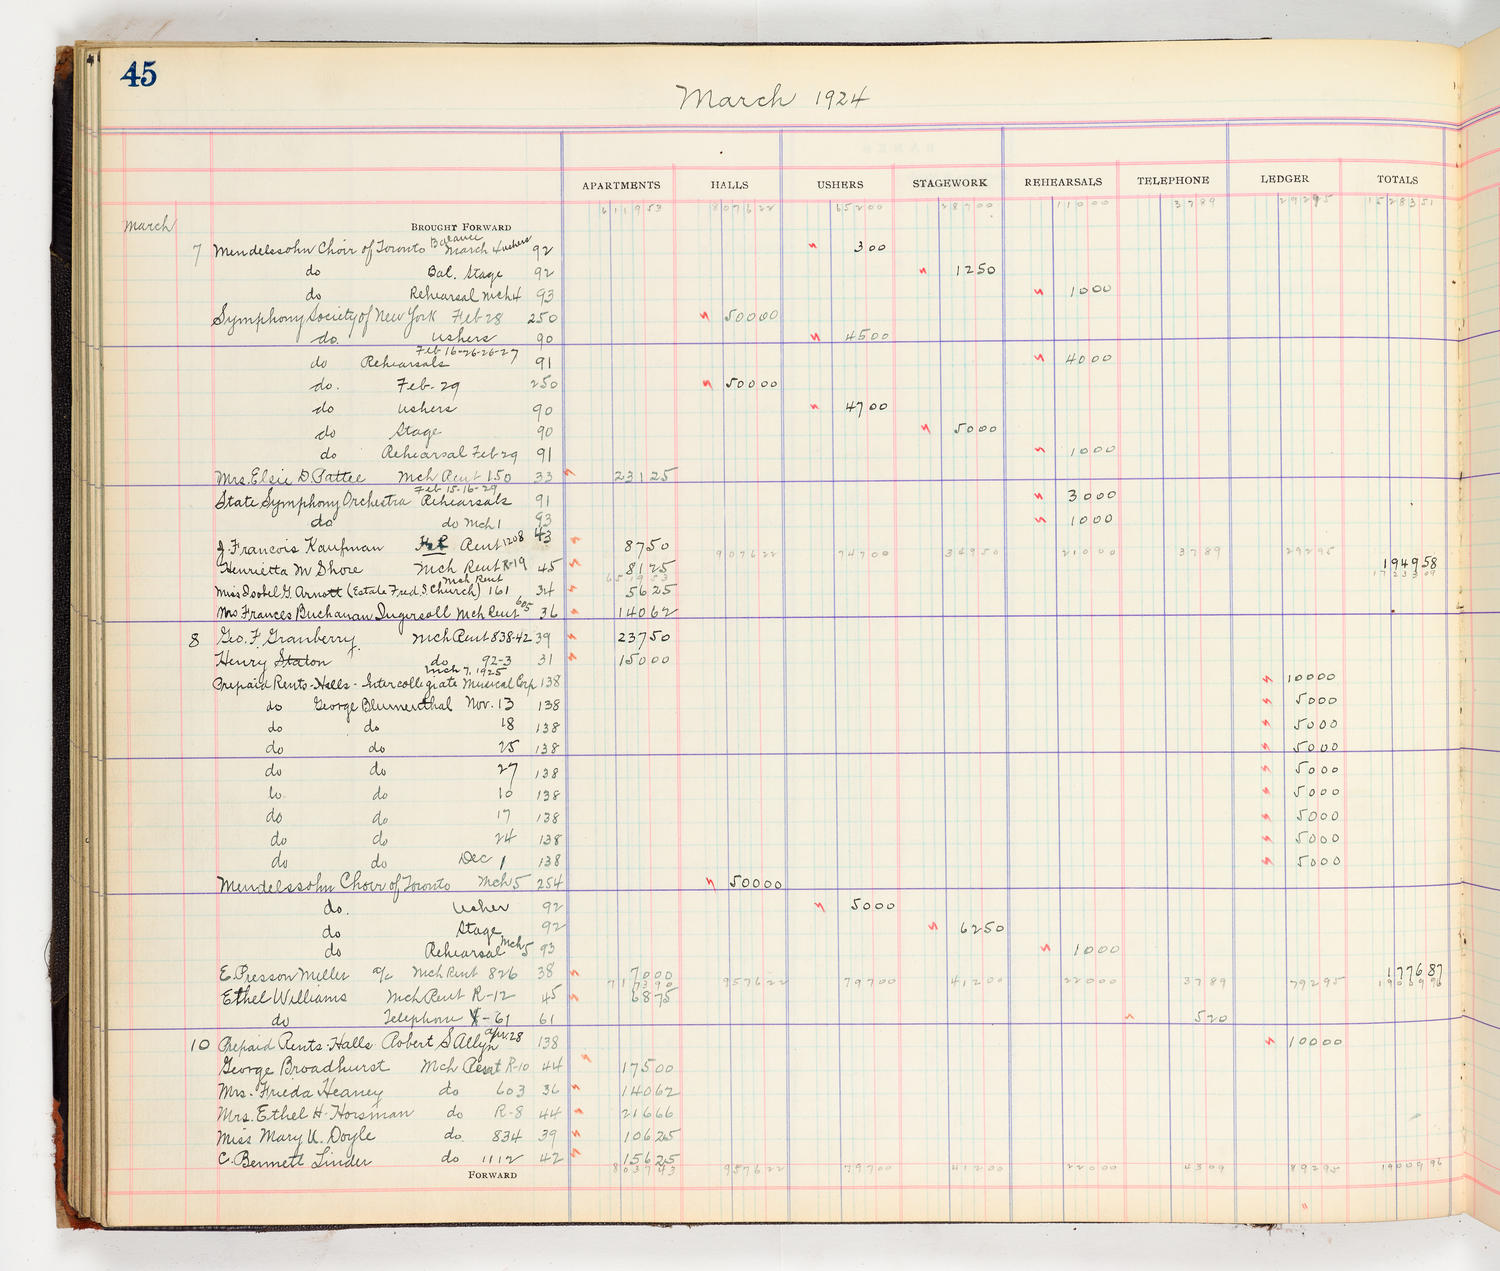 45
March 1924
APARTMENTS HALLS USHERS STAGEWORK REHEARSALS TELEPHONE LEDGER TOTALS
611953 807622 65200 28700 11000 3789 29295 1528351
March BROUGHT FORWARD
7 Mendelssohn Choir of Toronto Balance March 4 ushers 92 300
do Bal. Stage 92 1250
do Rehearsal Mch 4 93 1000
Symphony Society of New York Feb 28 250 50000
do. Ushers 90 4500
do Rehearsals Feb 16-26-26-27 91 4000
do. Feb. 29 250 50000
do Ushers 90 4700
do Stage 90 5000
do Rehearsal Feb 29 91 1000
Mrs. Elsie D Pattee Mch Rent 150 33 23125
State Symphony Orchestra Feb. 15-16-29 Rehearsals 91 3000
do do Mch 1 93 1000
J. Francois Kaufman Rent 1208 43 8750
907622 74700 34950 21000 3789 29295
Henrietta M Shore Mch Rent R-19 45 8125 194958
651953 1723309
Miss Isobel G. Arnott (Estate Fred. S. Church) Mch Rent 161 34 5625
Mrs Frances Buchanan Ingersoll Mch Rent 605 36 14062
8 Geo. F. Granberry Mch Rent 838-42 39 23750
Henry Staton do 92-3 31 15000
Prepaid Rents-Halls - Intercollegiate Musical Corp Mch 7, 1925 138 10000
do George Blumenthal Nov. 13 138 5000
do do 18 138 5000
do do 25 138 5000
do do 27 138 5000
do do 10 138 5000
do do 17 138 5000
do do 24 138 5000
do do Dec 1 138 5000
Mendelssohn Choir of Toronto Mch 5 254 50000
do. Usher 92 5000
do Stage 92 6250
do Rehearsal Mch 5 93 1000
E. Presson Miller a/c Mch Rent 826 38 7000 177687
717390 957622 79700 41200 22000 3789 79295 1900996
Ethel Williams Mch Rent R-12 45 6875
do Telephone -61 61 520
10 Prepaid Rents-Halls Robert S Allyn Apr. 28 138 10000
George Broadhurst Mch Rent R-10 44 17500
Mrs. Frieda Heaney do 603 36 14062
Mrs. Ethel H. Horsman do R-8 44 21666
Miss Mary U. Doyle do. 834 39 10625
C. Bennett Linder do 1112 42 15625
FORWARD 803743 957622 79700 41200 22000 4309 89295 1900996